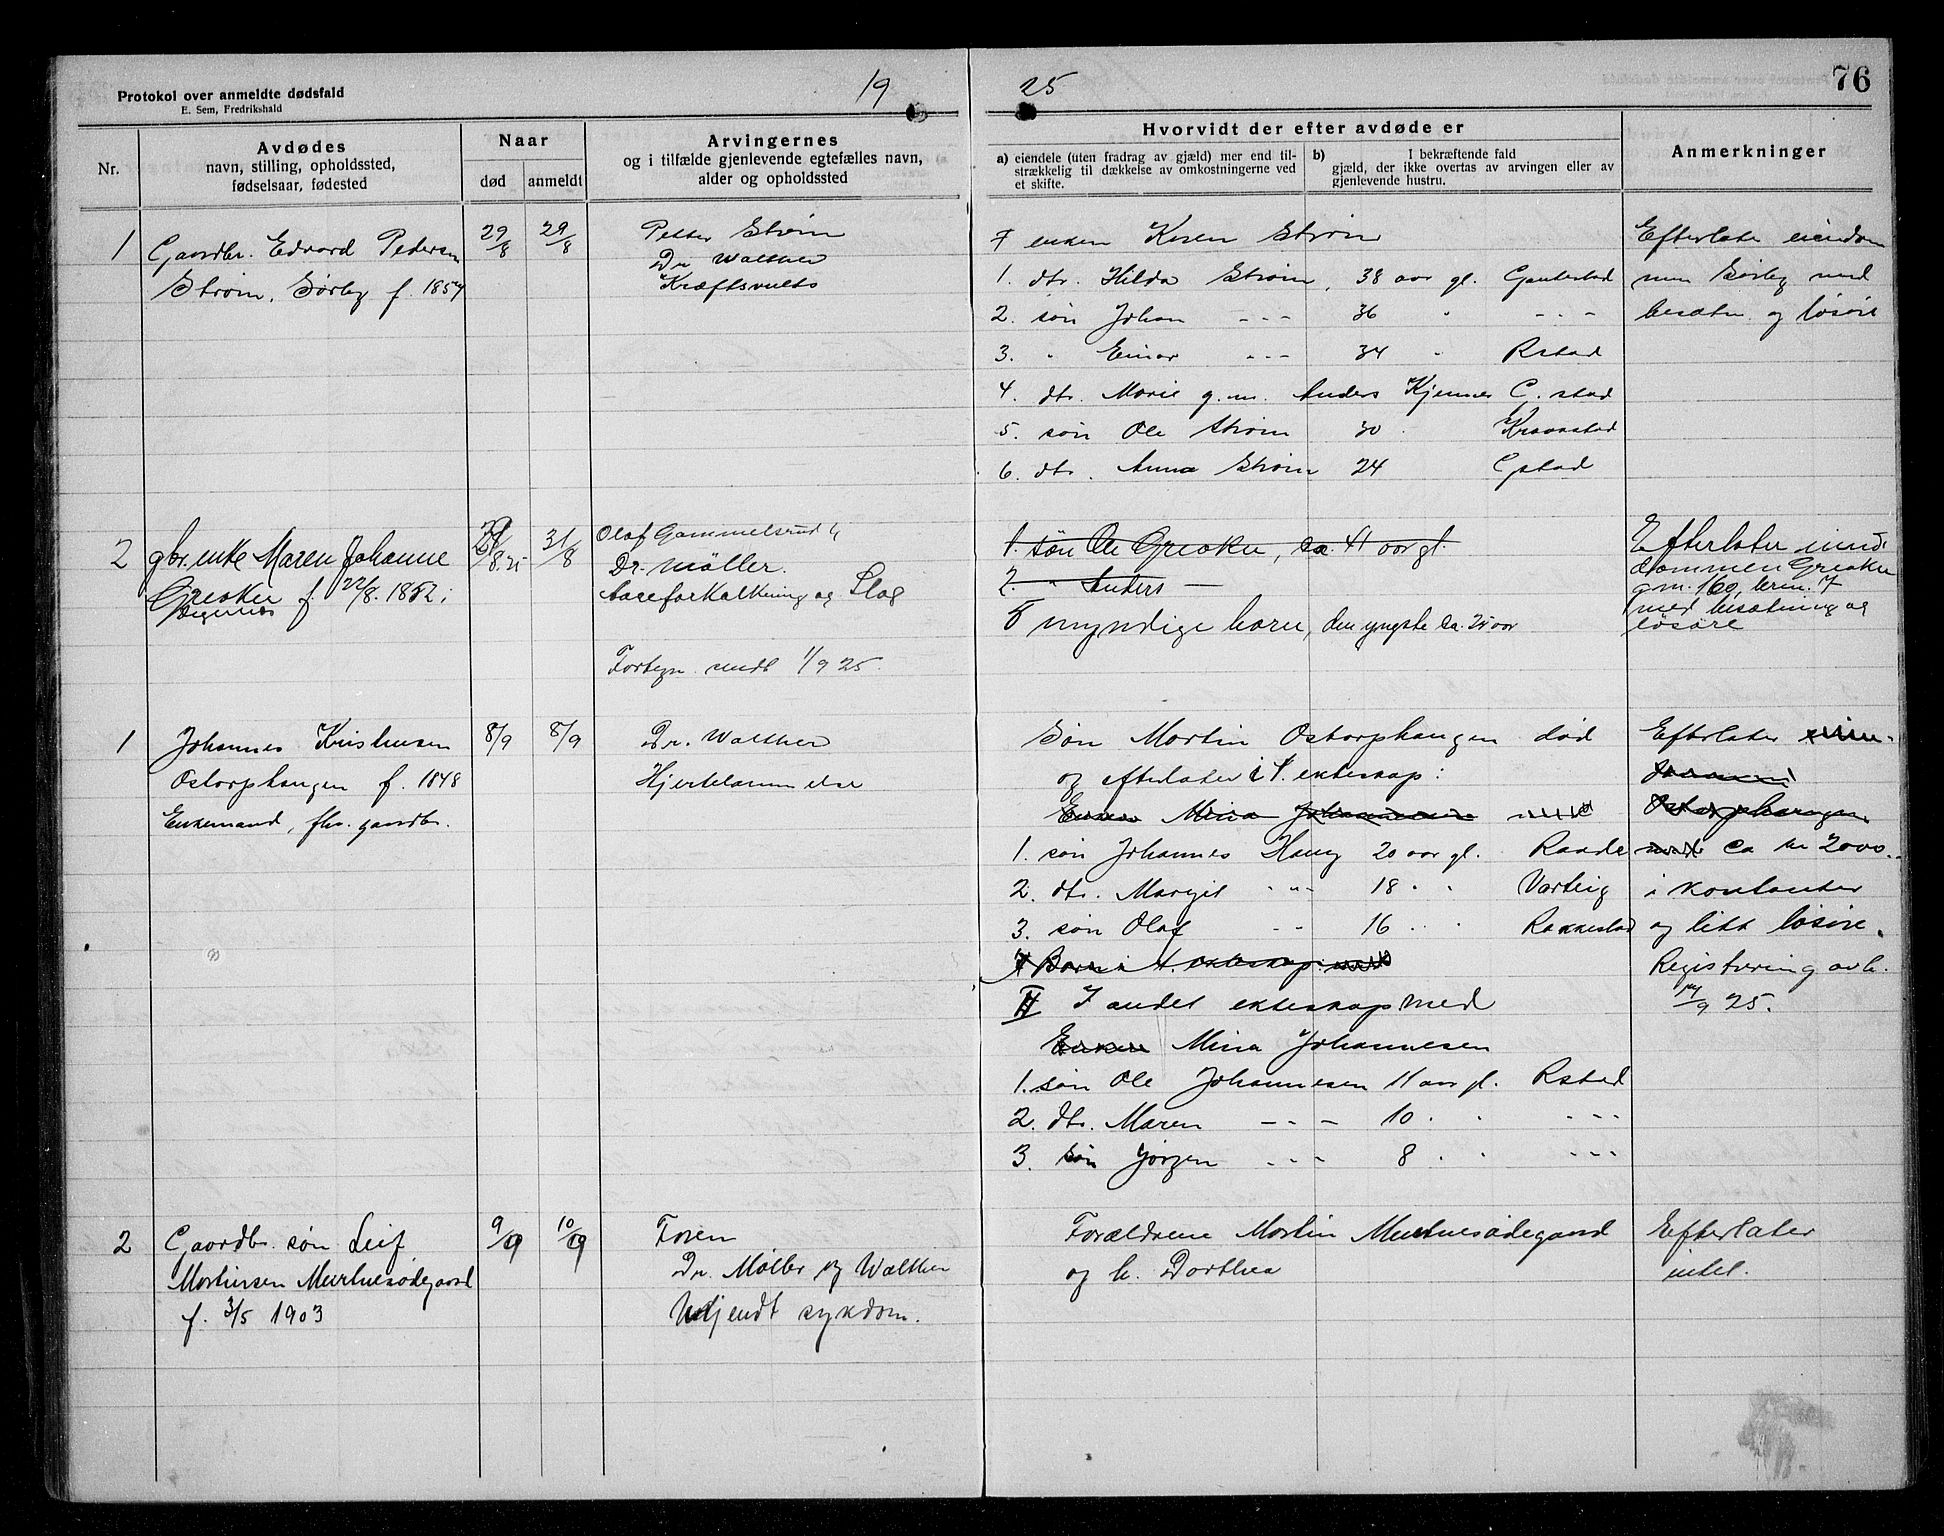 Protokol over anmeldte dødsfald
E. Sem, Fredrikshald
19 25
76
Nr.
Avdødes
navn, stilling, opholdssted,
fødselsaar, fødested
Naar
død
anmeldt
Arvingernes
og i tilfælde gjenlevende egtefælles navn,
alder og opholdssted
Hvorvidt der efter avdøde er
a) eiendele (uten fradrag av gjæld) mer end til-
strækkelig til dækkelse av omkostningerne ved
et skifte.
b) I bekræftende fald
gjæld, der ikke overtas av arvingen eller av
gjenlevende hustru.
Anmerkninger
1
Gaardbr. Edvard Pedersen
Strøm, Sørby f. 1857
29/8
29/8
Petter Strøm
Dr Walther
Kræftsvulst
enken Karen Strøm
1. dtr. Hilda Strøm, 38 aar gl.
2. søn Johan - - - 36 " - - -
3. " Einar - - - 34 " Rstad
4. dtr. Marie g.m. Anders Kjennes G. stad
5. søn Ole Strøm 30 Kraakstad
6. dtr. Anna Strøm 24 Gstad
Efterlater eiendom
men Sørby med
besætn. og løsøre
2
gbr. enke Maren Johanne
Greaker f 22/8. 1852.
Degernes
/8.25
31/8
Olaf Gammelsrud
Dr. Møller.
Aareforkalkning og Slag
Fortegn. sendt 1/9 25.
1. søn Ole Greaker, ca. 41 aar gl.
2. " Anders —
5 myndige barn, den yngste ca. 25 aar
Efterlater eien-
dommen Greaker
g.m. 160, brn. 7
med besætning og
løsøre
1
Johannes Kristensen
Ostorphaugen f. 1848
Enkemand, fhv. gaardbr.
8/9
8/9
Dr. Walther
Hjertelammelse
Søn Martin Ostorphaugen død
og efterlater i 1. ekteskap:
Enken Mina Johannesen
1. søn Johannes Haug 20 aar gl. Raade
2. dtr. Margit " " 18 " " Varteig
3. søn Olaf " " 16 " " Rakkestad
Barn i 1. ekteskap:
II I andet ekteskap med
Enken Mina Johannesen
1. søn Ole Johannesen 11 aar gl. Rstad
2. dtr. Maren - - - 10 " " " " "
3. søn Jörgen - - - 8 " " " " "
Efterlater eien-
dommen
Ostorphaugen
med ca kr 2000.
i kontanter
og litt løsøre.
Registrering avh.
14/9 25.
2
Gaardbr. søn Leif
Martinsen Murtnesødegaard
f. 3/5 1903
9/9
10/9
Faren
Dr. Møller og Walther
Ukjendt sykdom.
Forældrene Martin Murtnesødegaard
og h. Dorthea
Efterlater
intet.